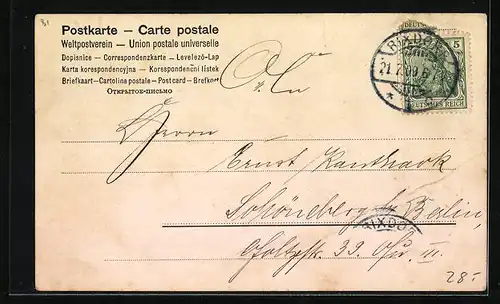 81
Postkarte — Carte postale
Weltpostverein — Union postale universelle
Dopisnice - Correspondenzkarte - Levelező-Lap
Karta korespondencyjna — Korespondenční lístek
Briefkaart - Cartolina postale - Postcard - Brefkort
Открытое-письмо
RIXDORF
5
DEUTSCHES REICH
Herrn
Ernst
Schöneberg by Berlin,
RIXDOR
39. III.
28.-